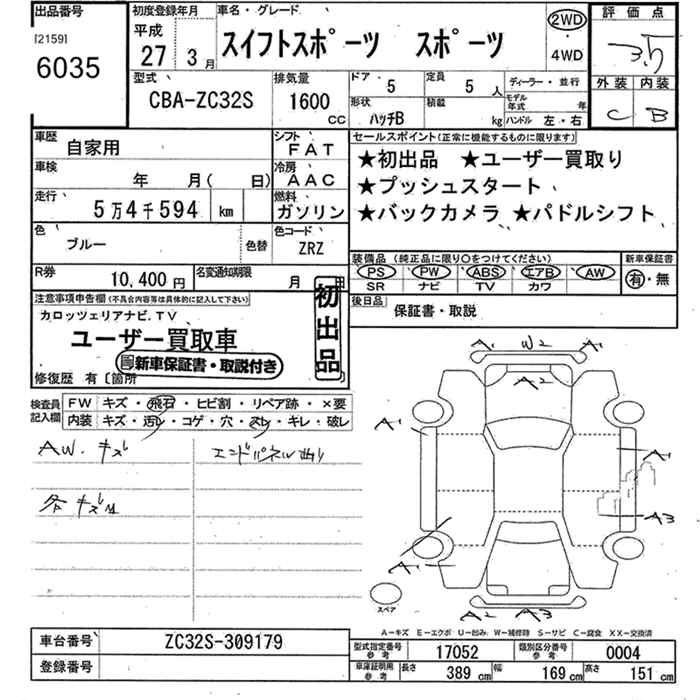 出品番号
[2159]
6035
初度登録年月
平成
27年 3月
車名・グレード
スイフトスポーツ スポーツ
2WD
・
4WD
評価点
3.5
外装 内装
C B
型式
CBA-ZC32S
排気量
1600
CC
ドア 5
定員 5人
形状 ハッチB
積載 kg
ディーラー・並行
モデル年式 年
ハンドル 左・右
車歴 自家用
シフト FAT
車検 年 月( 日)
冷房 AAC
走行 5万4千594 km
燃料 ガソリン
色 ブルー
色替
色コード ZRZ
R券 10,400円
名変通知期限 月 日
セールスポイント(正常に機能するものに限ります)
★初出品 ★ユーザー買取り
★プッシュスタート
★バックカメラ ★パドルシフト
装備品(純正品に限り○をつけてください)
新車保証書
PS PW ABS エアB AW
SR ナビ TV カワ
有・無
後日品 保証書・取説
注意事項申告欄(不具合内容等は具体的に記入して下さい)
カロッツェリアナビ.TV
ユーザー買取車
新車保証書・取説付き
初出品
修復歴 有〔箇所
検査員記入欄
FW キズ・飛石・ヒビ割・リペア跡・×要
内装 キズ・汚レ・コゲ・穴・スレ・キレ・破レ
AW.キズ
各キズ
A1 W2 A1
A2
A1
A1
A3
A1
A2 A3
スペア
A-キズ E-エクボ U-凹み W-補修跡 S-サビ C-腐食 XX-交換済
車台番号 ZC32S-309179
登録番号
型式指定番号 参考 17052
類別区分番号 参考 0004
車庫証明用 参考 長さ 389cm 幅 169cm 高さ 151cm